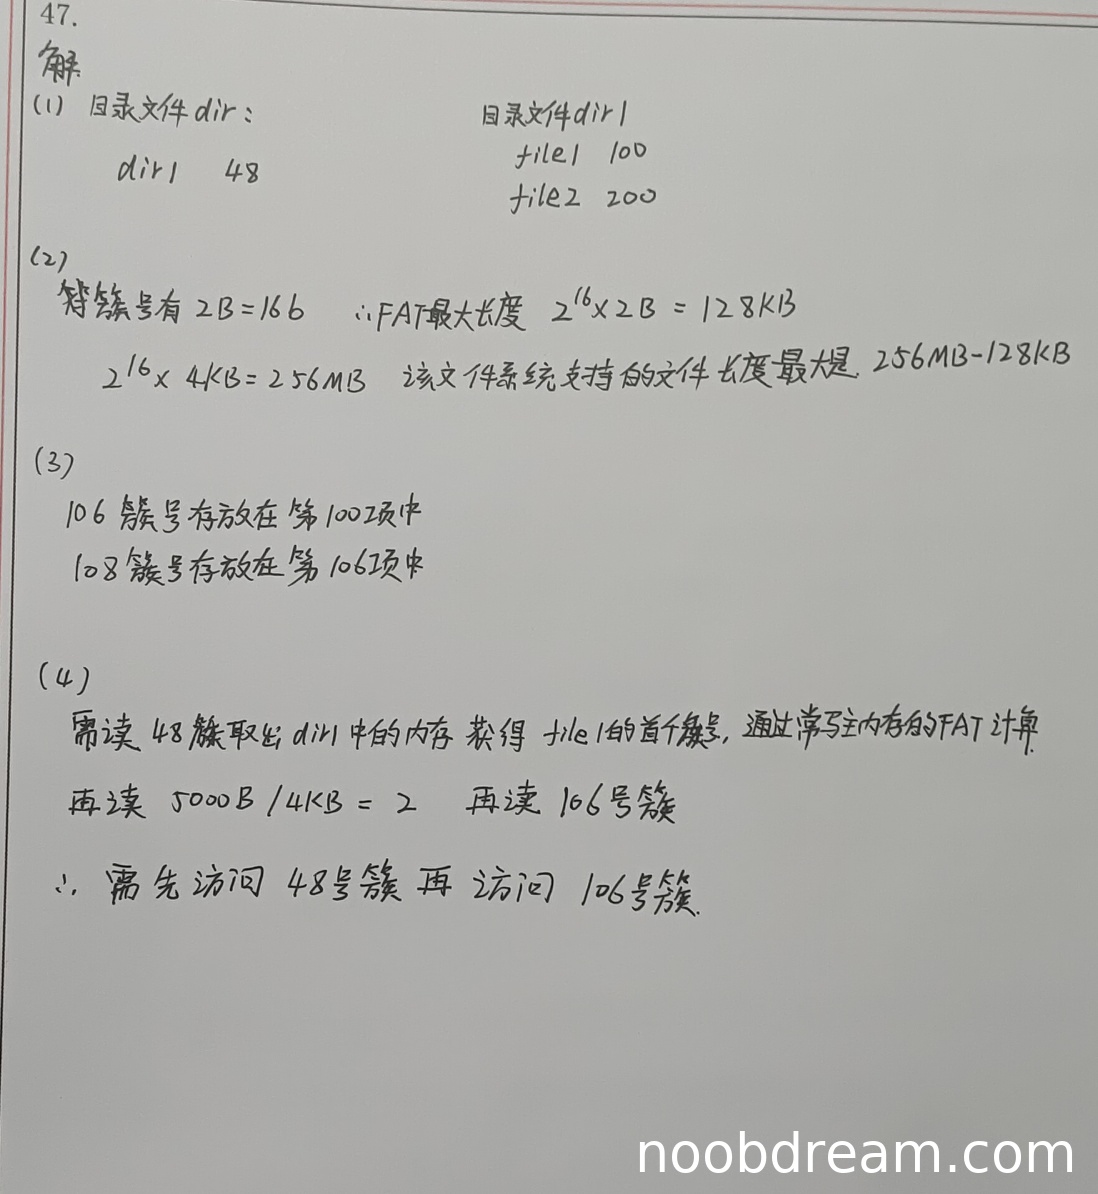 47.
解
(1) 目录文件dir：
目录文件dir1
dir1 48
file1 100
file2 200
(2)
簇号有 2B=16b ∴FAT最大长度 2^16×2B = 128KB
2^16× 4KB=256MB 该文件系统支持的文件长度最大是 256MB-128KB
(3)
106 簇号存放在第100项中
108簇号存放在第106项中
(4)
需读 48 簇取出 dir1 中的内存 获得 file1的首个簇号，通过常写主内存的FAT计算
再读 5000B/4KB = 2 再读 106号簇
∴ 需先访问 48号簇再访问 106号簇.
noobdream.com